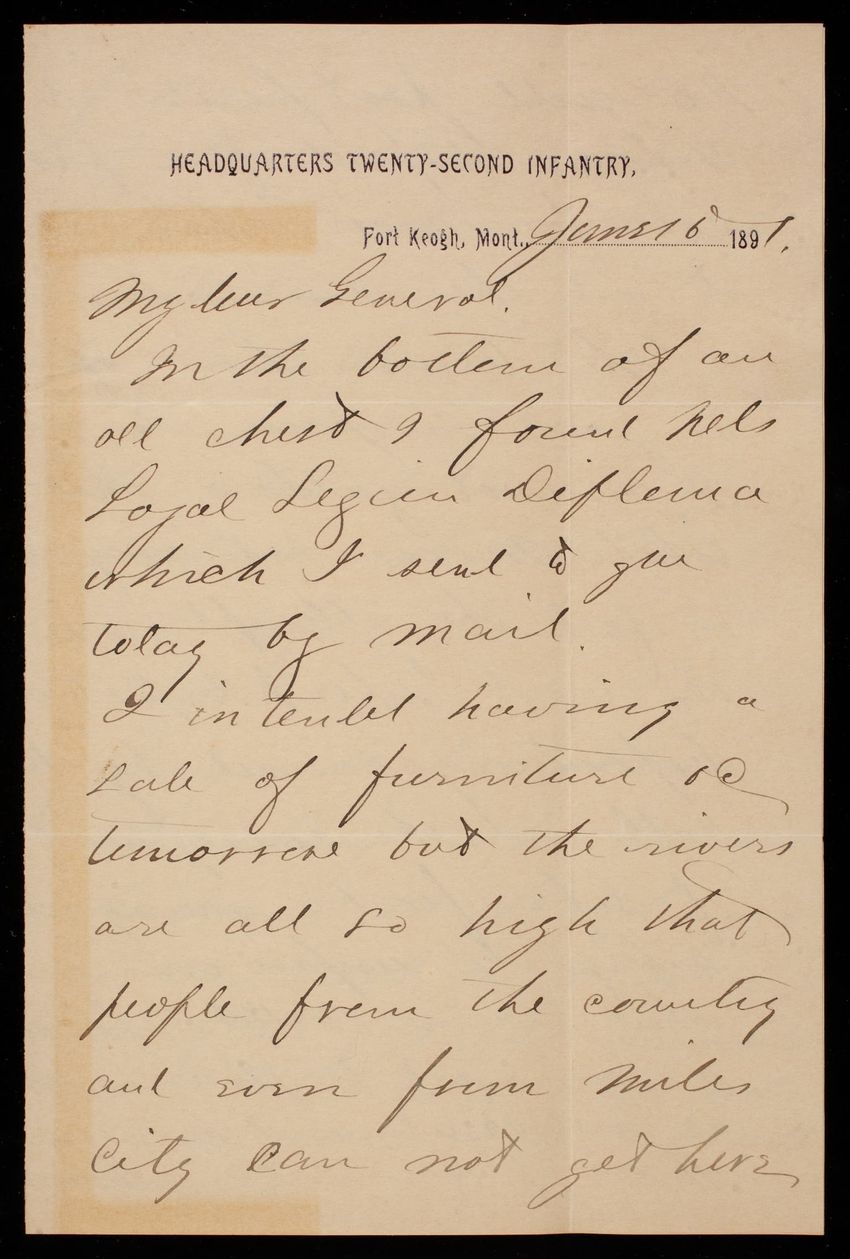 HEADQUARTERS TWENTY-SECOND INFANTRY,
Fort Keogh, Mont., June 16 1891.
My dear General.
In the bottom of an
old chest I found
Loyal Legion Diploma
which I send to you
today by mail.
I intended having a
sale of furniture &c
tomorrow but the rivers
are all so high that
people from the country
and even from Miles
City can not get here